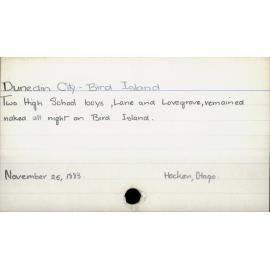 Dunedin City - Bird Island
Two High School boys, Lane and Lovegrove, remained
naked all night on Bird Island.
November 26, 1883 Hocken, Otago.